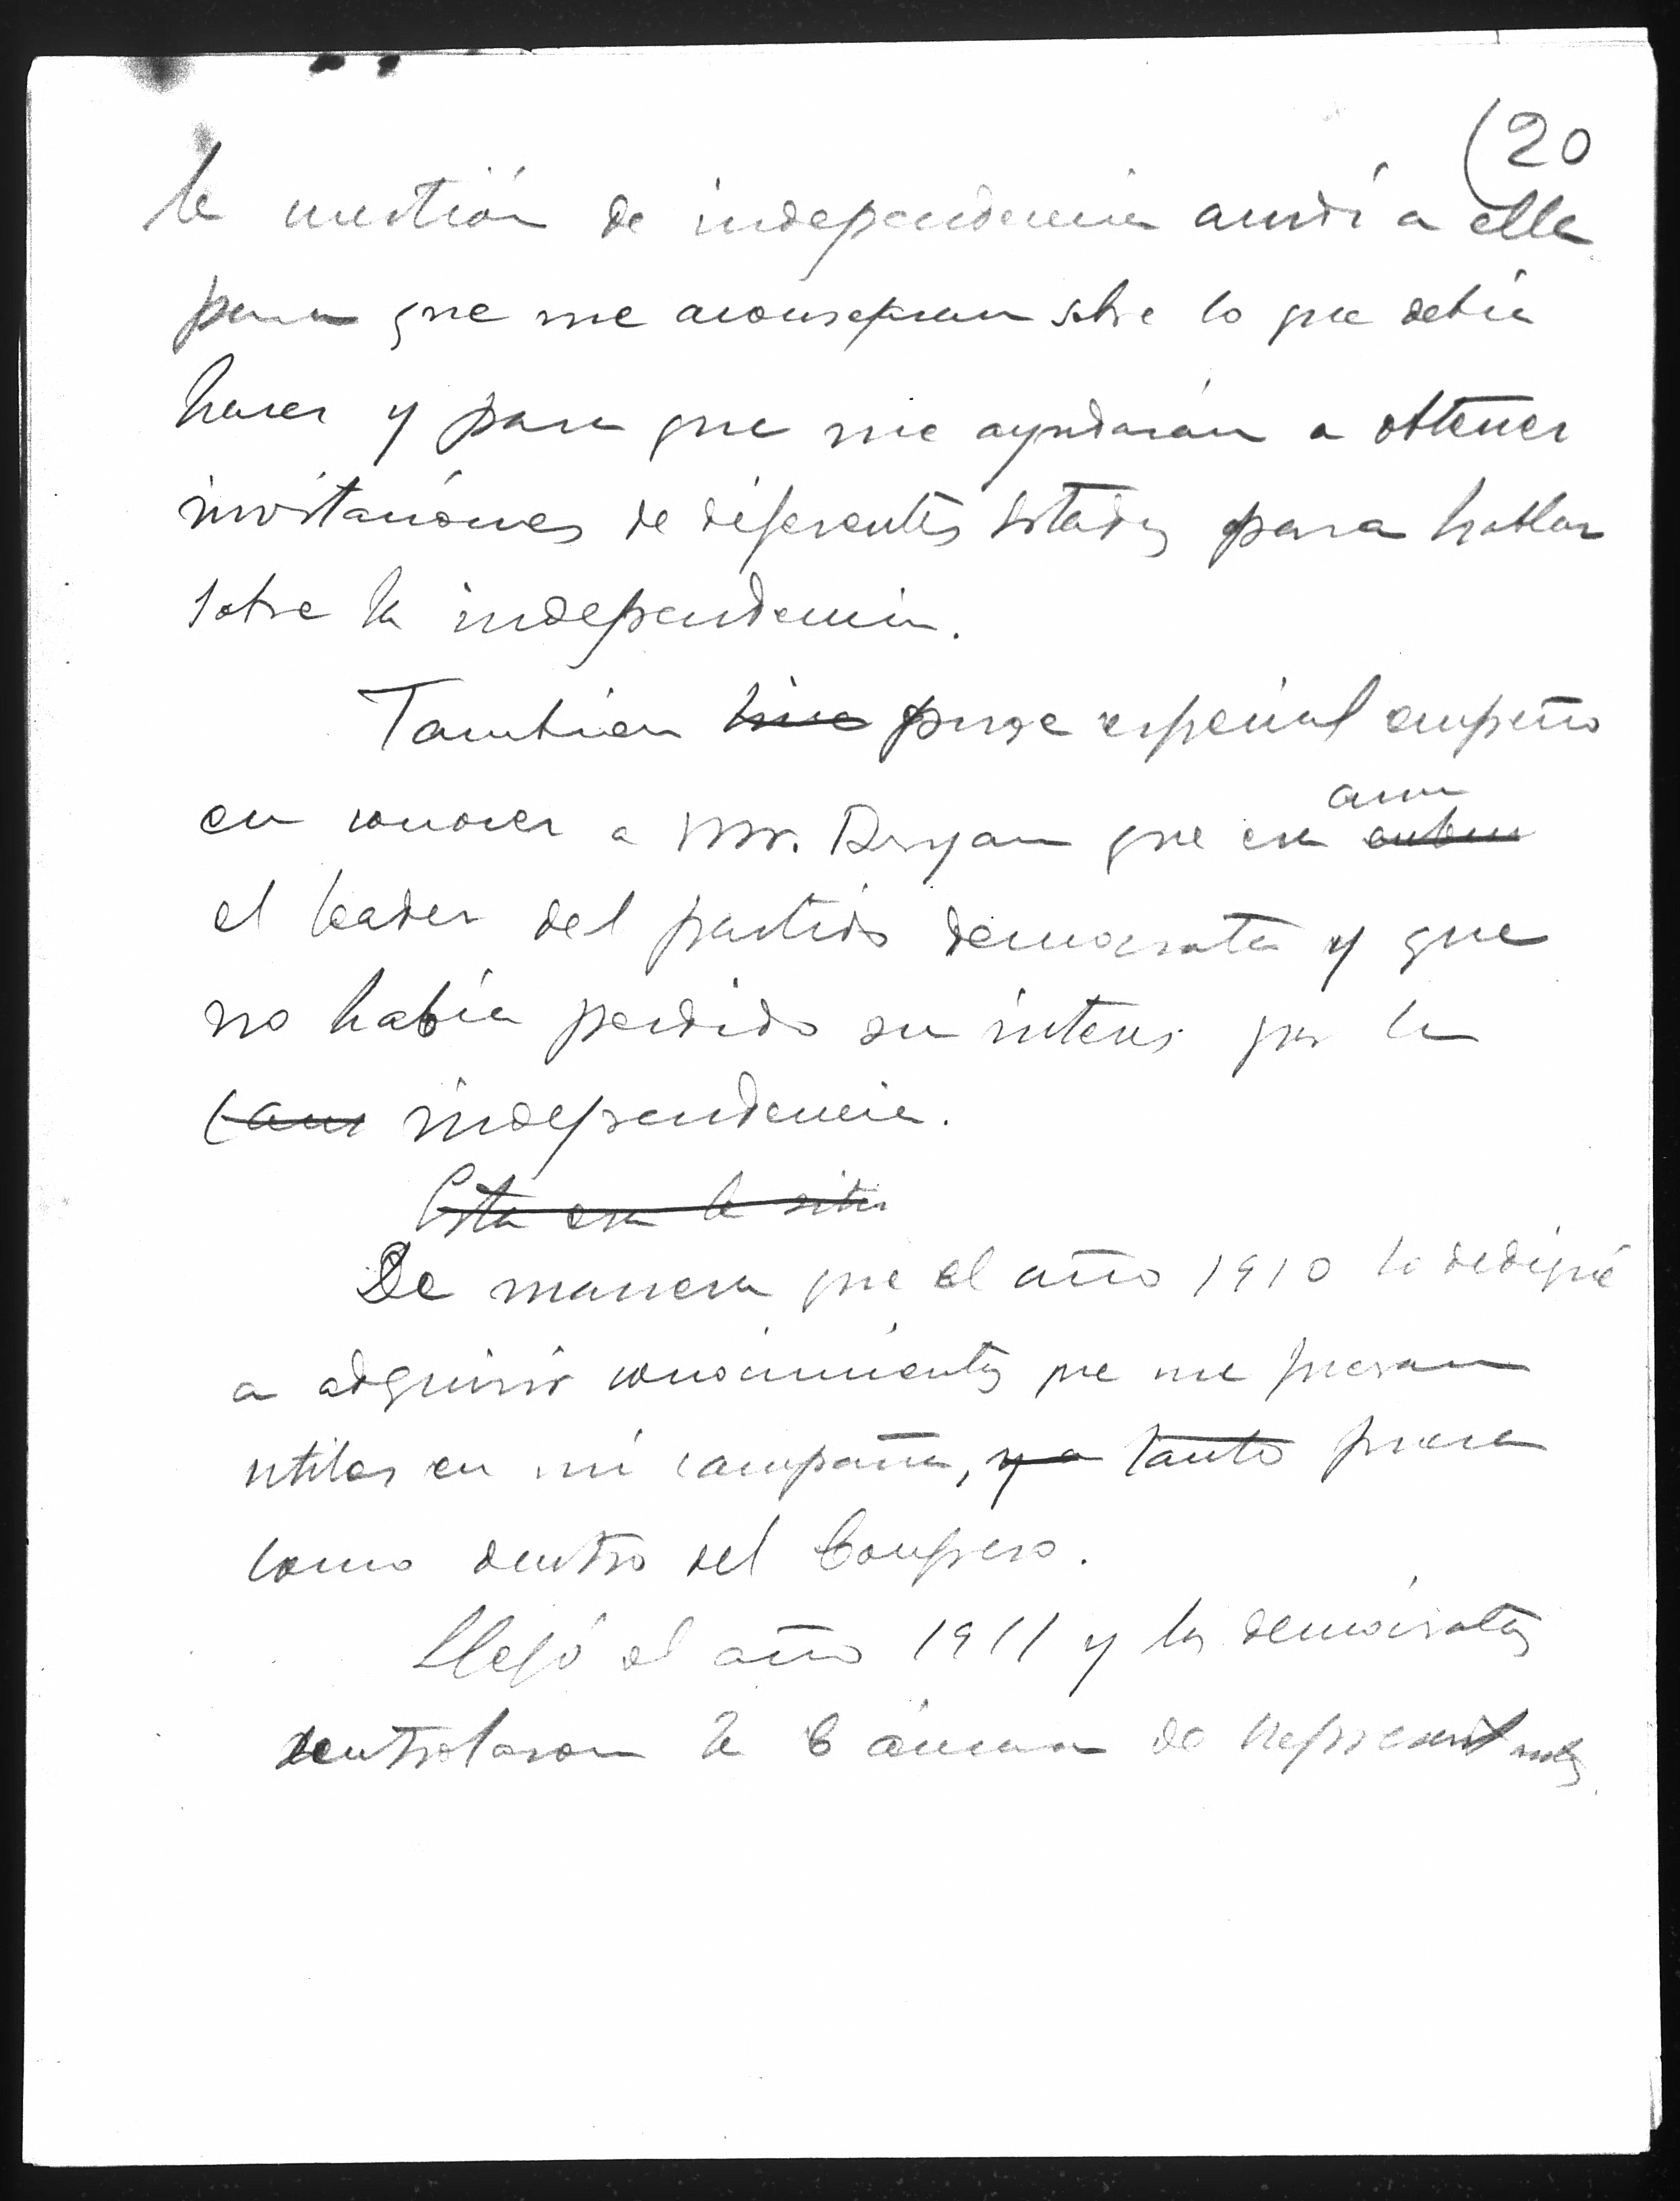 (20
la cuestión de independencia acudí a ella
para que me aconsejaran sobre lo que debía
hacer y para que me ayudarán a obtener
invitaciones de diferentes Estados para hablar
sobre la independencia.
Tambien hice puse especial empeño
en conocer a Mr. Bryan que era aun
el leader del partido democrata y que
no había perdido su interes por la
independencia.
Esta era la situ
De manera que el año 1910 lo dediqué
a adquirir conocimientos que me fueran
utiles en mi campaña, ya tanto fuera
como dentro del Congreso.
Llegó el año 1911 y los demócratas
controlaron la Cámara de Representantes